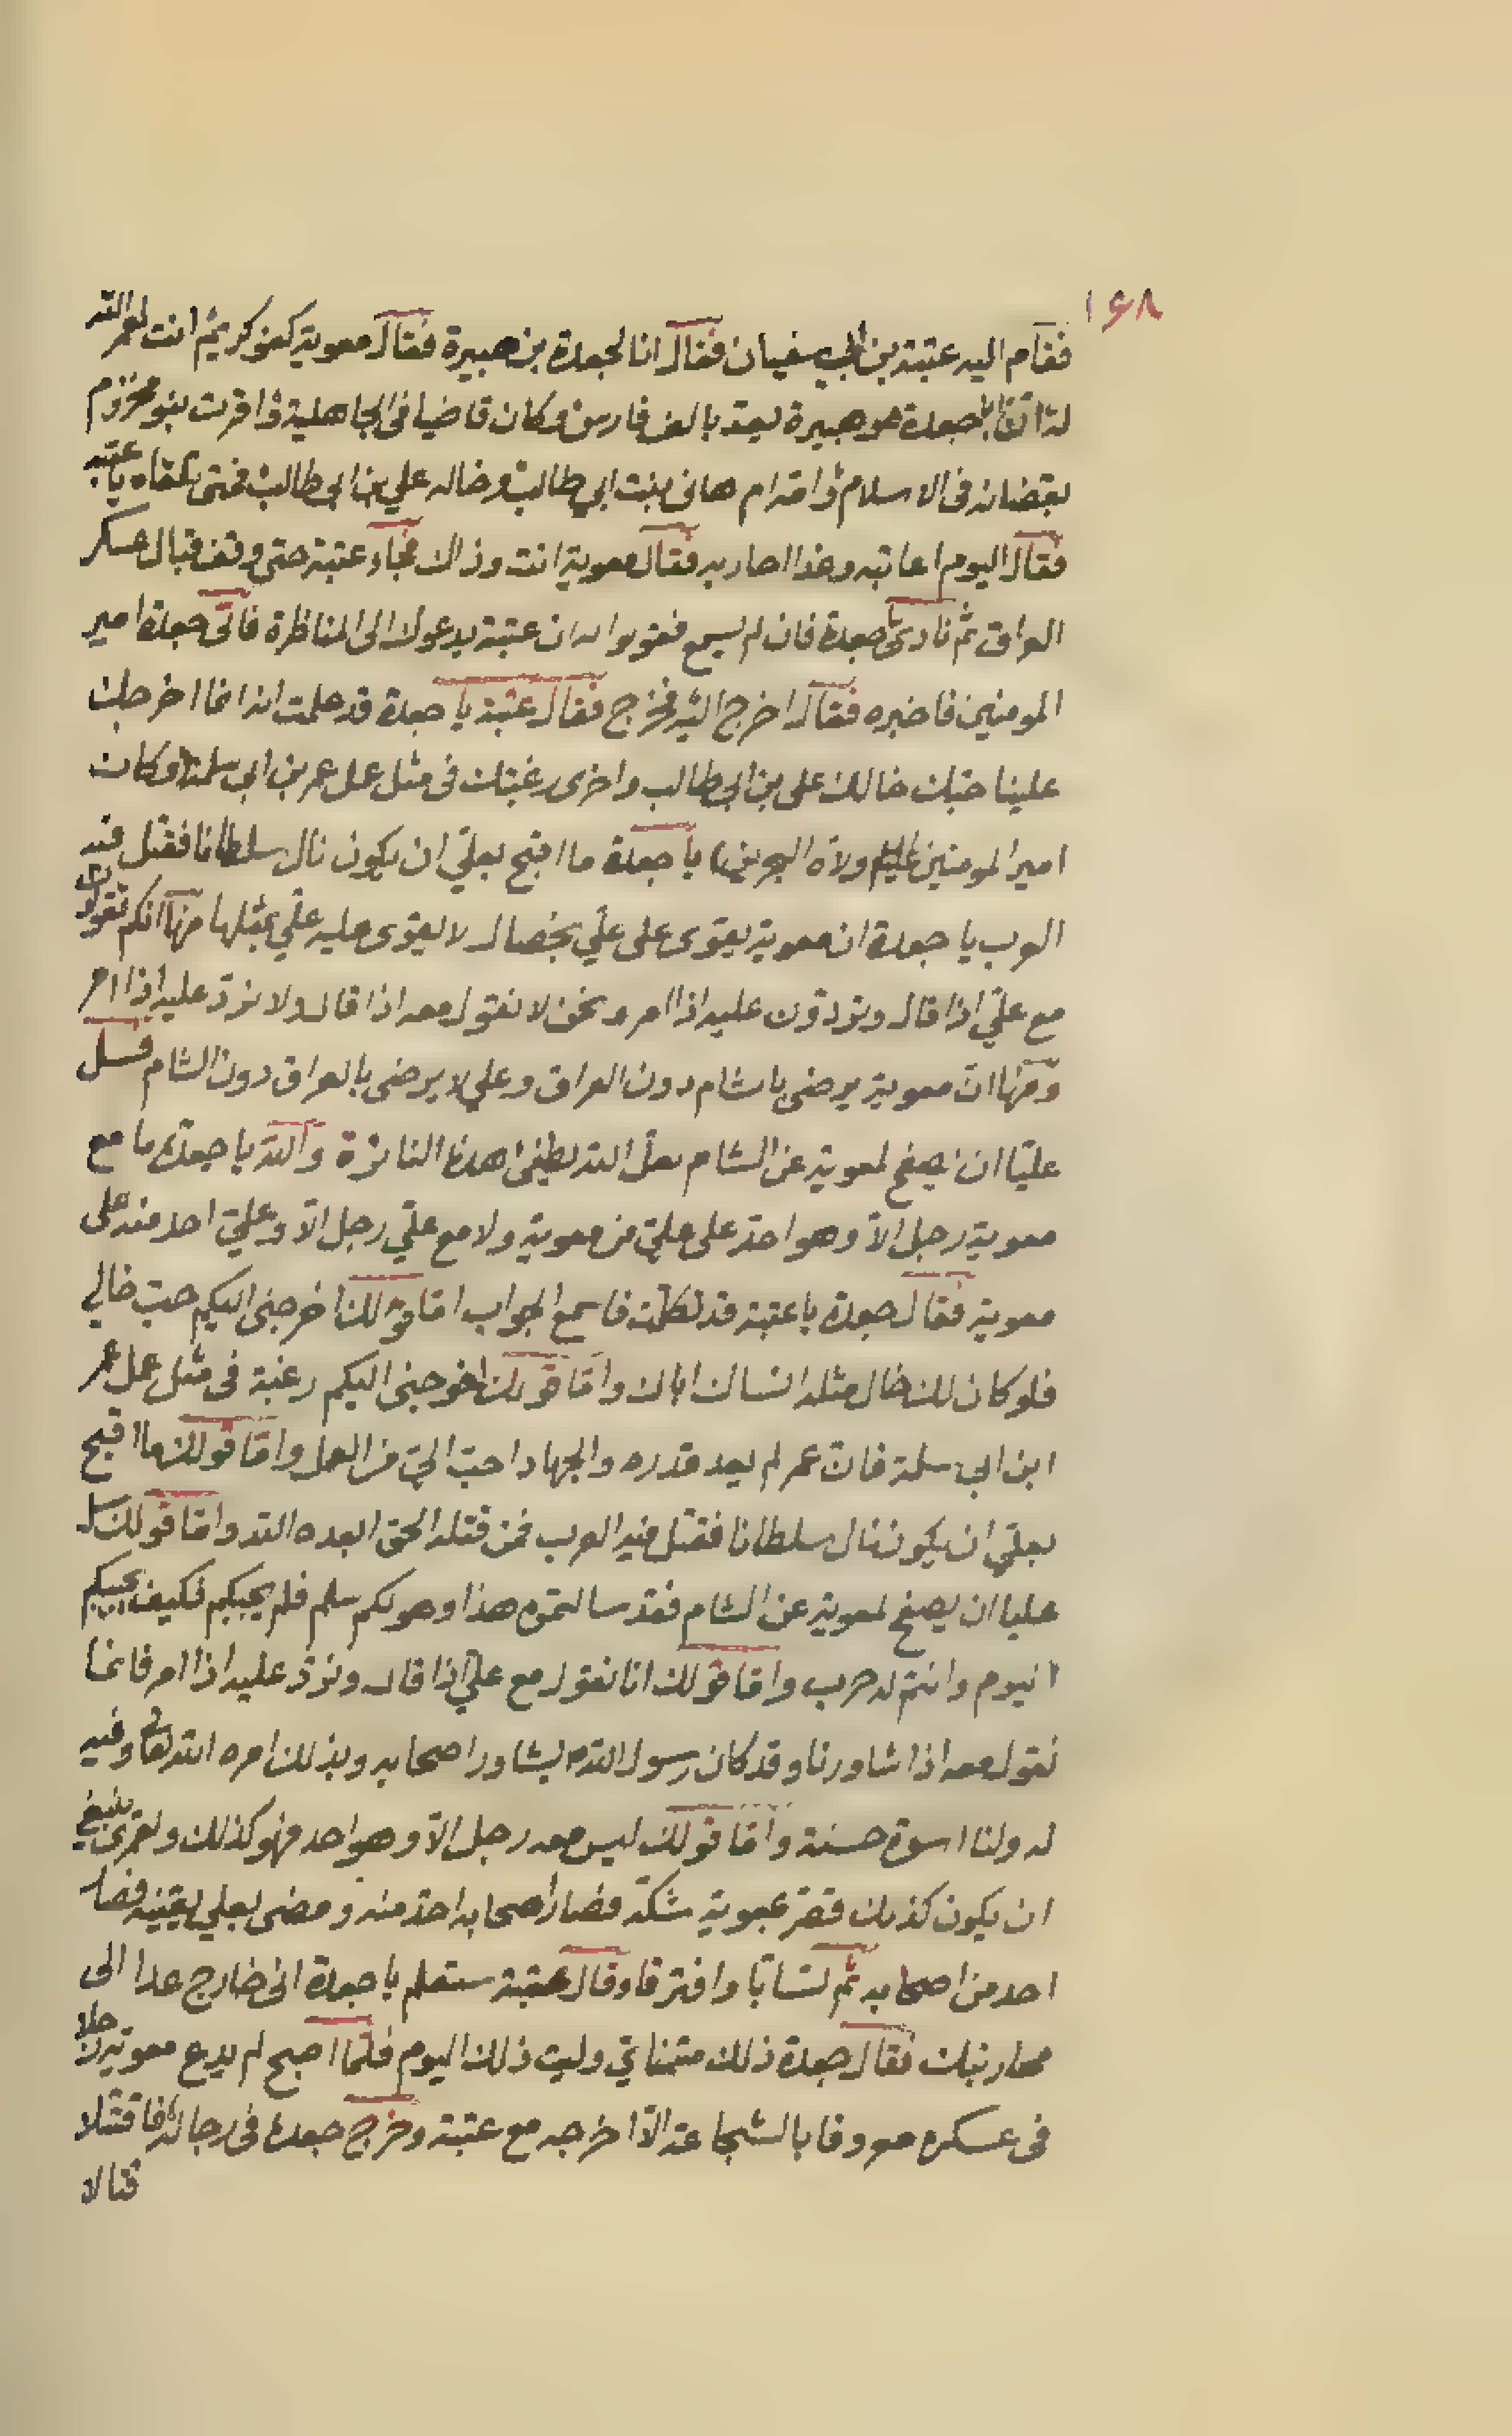 ١٦٨
فقام اليه عتبة بن ابي سفيان فقال انا لجعدة بن هبيرة فقال معوية كفو كريم انت لعمر الله
جعدة هو هبيرة يعد بالف فارس وكان قاضيا في الجاهلية واقرت بنو مخزوم
بقضائه في الاسلام وامه ام هاني بنت ابي طالب وخاله علي بن ابي طالب فمتى تلقاه يا عتبه
فقال اليوم اعاتبه وغدا احاربه فقال معوية انت وذاك فجاء عتبة حتى وقف قبال عسكر
العراق ثم نادى يا جعدة فان لم يسمع فقولوا له ان عتبة يدعوك الى المناظرة فاتى جعدة امير
المومنين فاخبره فقال اخرج اليه فخرج فقال عتبة يا جعدة قد علمت انه انما اخرجك
علينا حبك خالك علي بن ابي طالب واخرى رغبتك في مثل عمل عمر بن ابي سلمة وكان
امير المومنين ولاه البحرين يا جعدة ما اقبح بعلي ان يكون نال سلطانا فقتل فيه
العرب يا جعدة ان معوية يقوى على علي بخصال لا يقوى عليه علي بمثلها منها انكم تقولون
مع علي اذا قال وتردون عليه اذا امر ونحن لا نقول معه اذا قال ولا نرد عليه اذا امر
ومنها ان معوية يرضى بالشام دون العراق وعلي لا يرضى بالعراق دون الشام فسل
عليا ان يصفح لمعوية عن الشام لعل الله يطفئ هذه النائرة والله يا جعدة ما مع
معوية رجل الا وهو احد على علي من معوية ولا مع علي رجل الا وعلي احد منه على
معوية فقال جعدة يا عتبة قد تكلمت فاسمع الجواب اما قولك اخرجني اليكم حب خالي
فلو كان لك خال مثله انساك اباك واما قولك اخرجني اليكم رغبة في مثل عمل عمر
ابن ابي سلمة فان عمر لم يعد قدره والجهاد احب الي من العمل واما قولك ما اقبح
بعلي ان يكون نال سلطانا فقتل فيه العرب فمن قتله الحق ابعده الله واما قولك سل
عليا ان يصفح لمعوية عن الشام فقد سالتموه هذا وهو لكم سلم فلم يجبكم فكيف يجيبكم
اليوم وانتم له حرب واما قولك انا نقول مع علي اذا قال ونرد عليه اذا امر فانما
نقول معه اذا شاورنا وقد كان رسول الله ص يشاور اصحابه وبذلك امره الله تعالى وفيه
له ولنا اسوة حسنة واما قولك ليس معه رجل الا وهو احد فهو كذلك ولعمري ينبغي
ان يكون كذلك فقصر بمعوية شكه فصار اصحابه احد منه ومضى بعلي يقينه فصار
احد من اصحابه ثم تسابا وافترقا وقال عتبة ستعلم يا جعدة اني خارج غدا الى
محاربتك فقال جعدة ذلك متمناي وليت ذلك اليوم فلما اصبح لم يدع معوية رجلا
في عسكره معروفا بالشجاعة الا اخرجه مع عتبة وخرج جعدة في رجاله فاقتتلا
قتالا